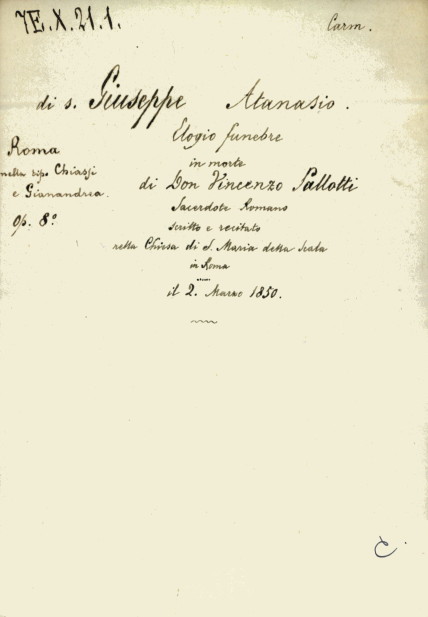 7E.X.21.1.
Carm.
di s. Giuseppe Atanasio.
Elogio funebre
in morte
di Don Vincenzo Pallotti
Sacerdote Romano
scritto e recitato
nella Chiesa di S. Maria della Scala
in Roma
il 2. Marzo 1850.
Roma
nella tipo. Chiassi
e Gianandrea.
Op. 8º
C.